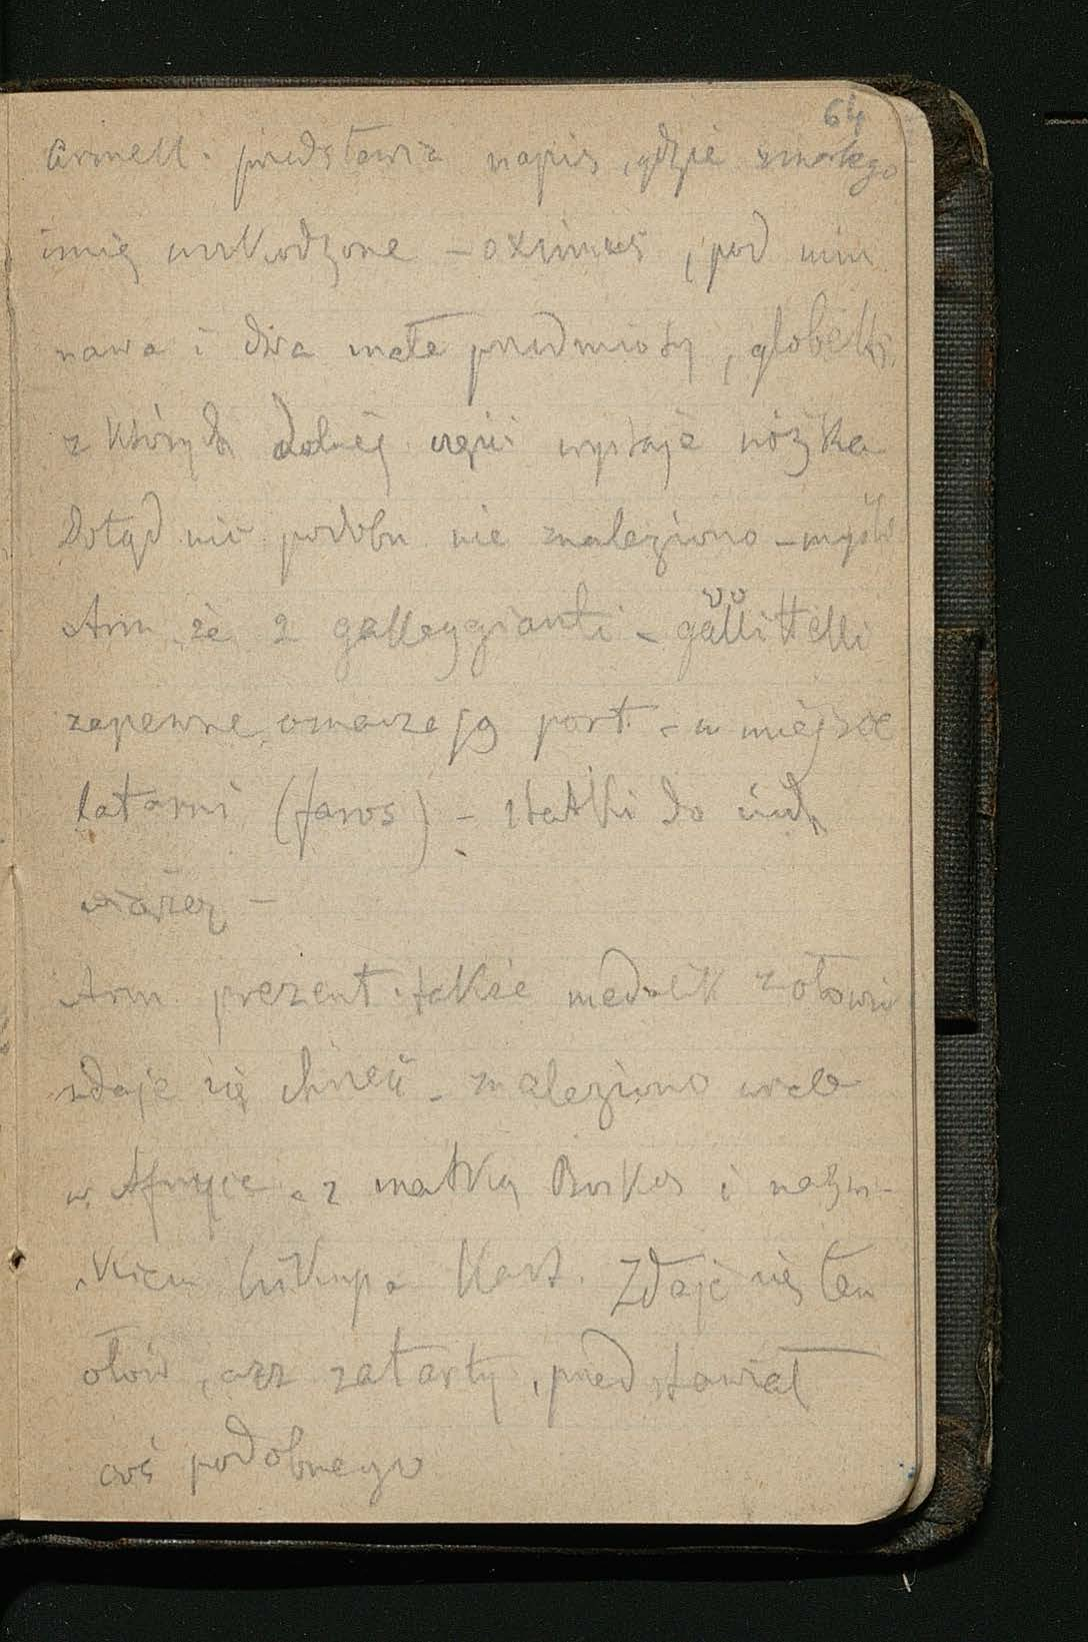 64
Armell. przedstawia napis, gdzie zmarłego
imię uszkodzone – oximus, pod nim
nawa i dwa małe przedmioty, globetti,
z których dolnej części wystaje nóżka
Dotąd nic podobn nie znaleziono – myśli
Arm że 2 galleggianti – gallittelli
zapewne oznaczają port – w miejsce
latarni (faros) – statki do nich
wiążą –
Arm prezent. także medalik z ołowiu
zdaje się chrześć – znaleziono wiele
w Afryce – z matką Boską i nazwi-
skiem biskupa Kart. Zdaje się ten
ołów, acz zatarty, przedstawiał
coś podobnego